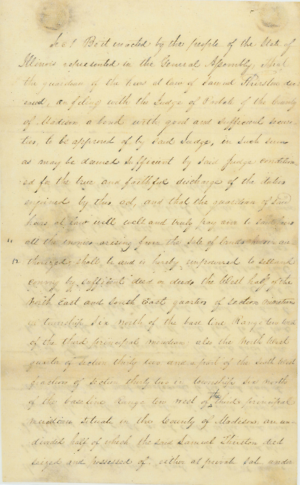 Sec 1 Be it enacted by the people of the State of
Illinois represented in the General Assembly, That
the guardian of the heirs at law of Samuel Thurston dec
eased, on filing with the Judge of Probate of the County
of Madison a bond with good and sufficient securi
ties, to be approved of by said Judge, in such sum
as may be deemed sufficient by said Judge condition
ed for the true and faithful discharge of the duties
required by this act, and that the guardian of said
heirs at law will well and truly pay over to said heirs
all the monies arising from the sale of
shall be and is hereby empowered to sell and
convey by sufficient deed or deeds the West half of the
North east and South East quarters of section nineteen
in township Six north of the base line Range ten west
of the third principal meridian also the North West
quarter of Section thirty two and a part of the South West
quarter of Section thirty two in township Six north
of the base line Range ten west of the third principal
meridian situate in the County of Madison an un
divided half of which the said Samuel Thurston died
seized and possessed of either at private Sale under